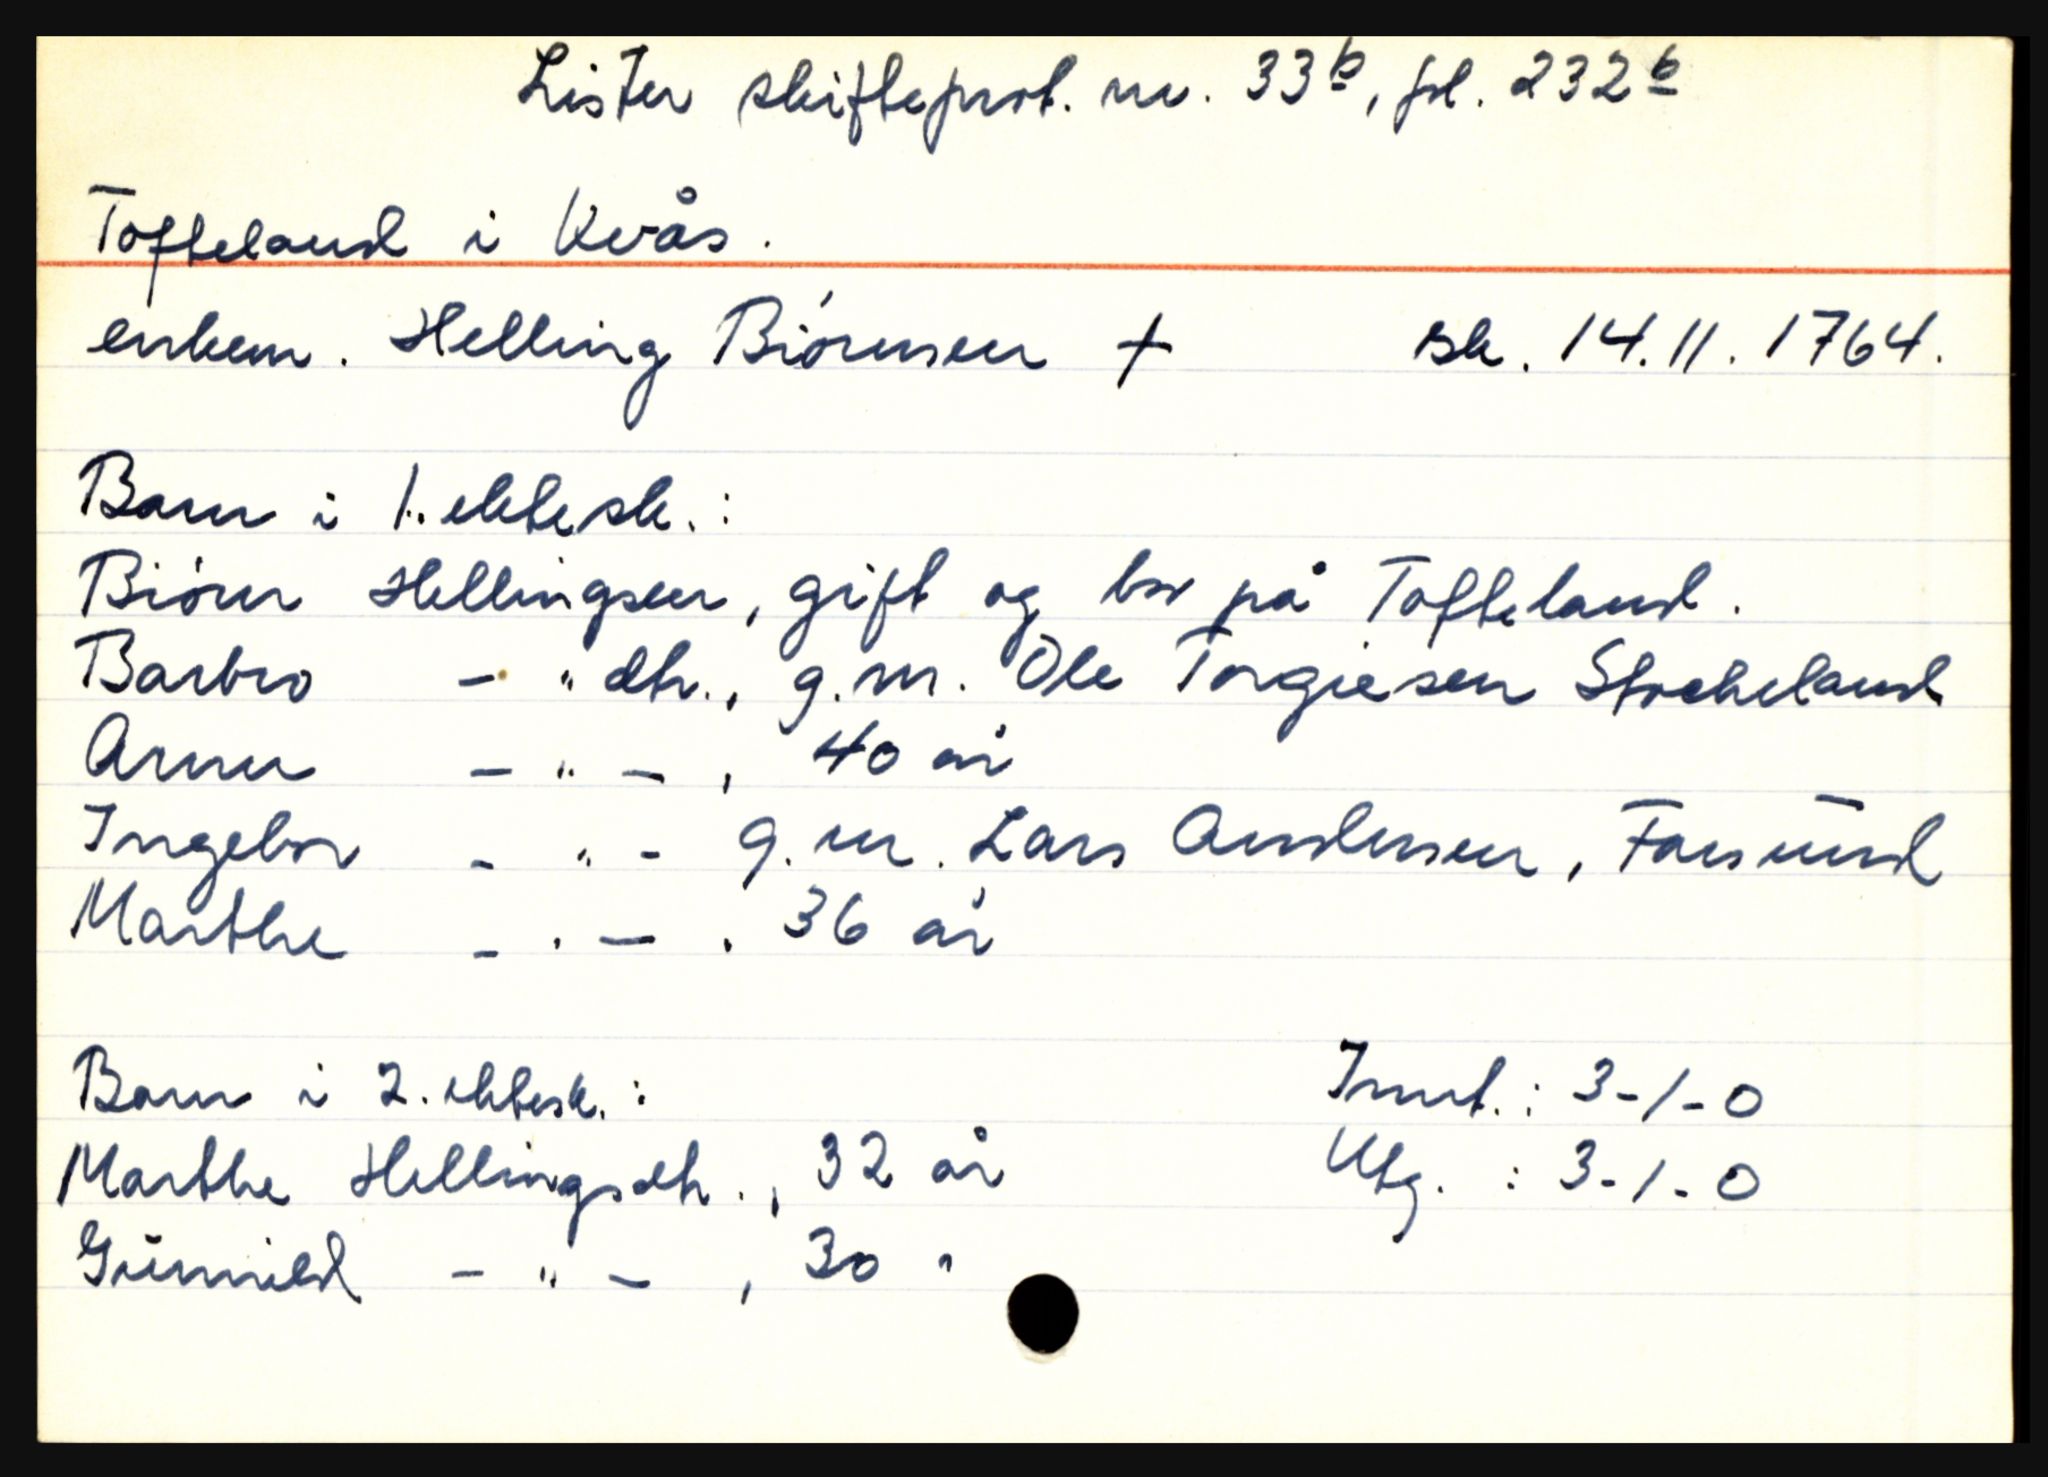 Lister skifteprot. nr. 33b, fol. 232b
Tofteland i Kvås.
enkem. Helling Biørnsen † sk. 14.11.1764.
Barn i 1. ektesk.:
Biørn Hellingsen, gift og bor på Tofteland.
Barbro - " dtr., g.m. Ole Torgiesen Stocheland
Anna - " - , 40 år
Ingebor - " - g.m. Lars Andersen, Farsund
Marthe - " - , 36 år
Barn i 2. ektesk.: Innt.: 3-1-0
Marthe Hellingsdtr., 32 år Utg. : 3-1-0
Gunnild - " - , 30 "